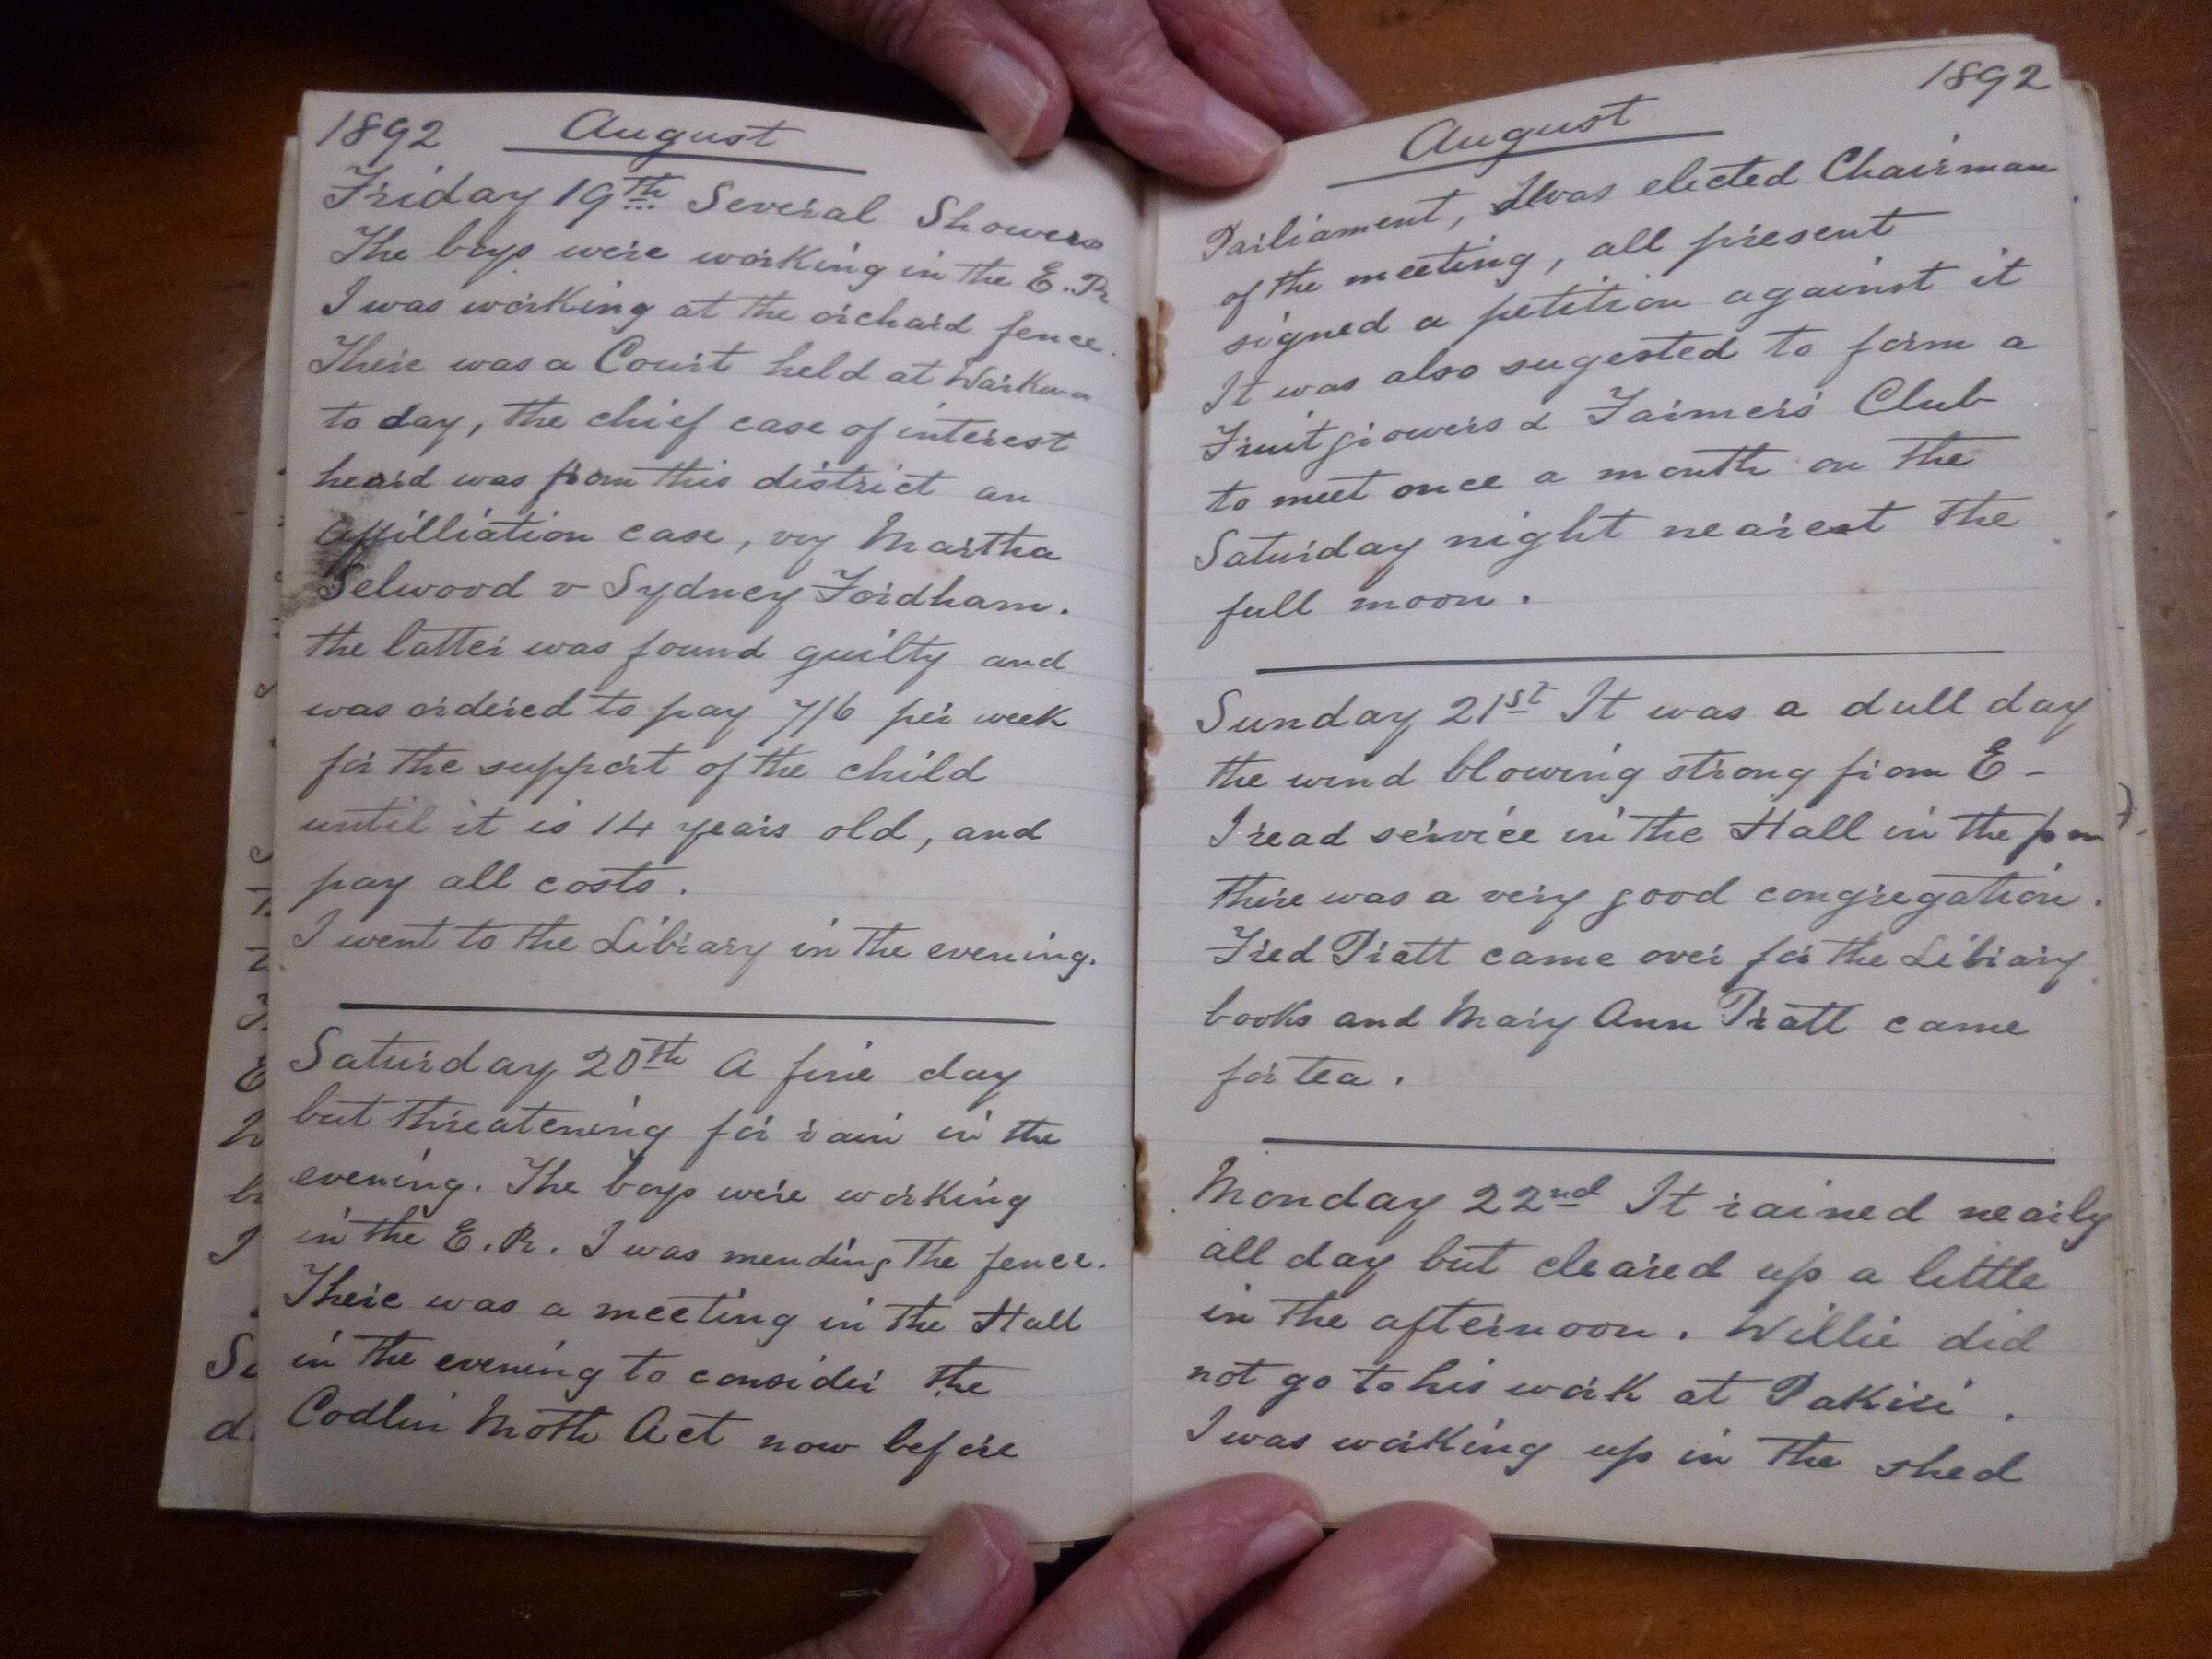 1892 August
Friday 19th Several Showers
The boys were working in the E.R
I was working at the orchard fence.
There was a Court held at Warkwa
to day, the chief case of interest
heard was from this district an
affilliation case, viz Martha
Selwood v Sydney Fordham.
the latter was found guilty and
was ordered to pay 7/6 per week
for the support of the child
until it is 14 years old, and
pay all costs.
I went to the Library in the evening.
Saturday 20th A fine day
but threatening for rain in the
evening. The boys were working
in the E.R. I was mending the fence.
There was a meeting in the Hall
in the evening to consider the
Codlin Moth Act now before
August 1892
Parliament, I was elected Chairman
of the meeting, all present
signed a petition against it
It was also sugested to form a
Fruitgrowers & Farmers' Club
to meet once a month on the
Saturday night nearest the
full moon.
Sunday 21st It was a dull day
the wind blowing strong from E -
I read service in the Hall in the pm
there was a very good congregation.
Fred Pratt came over for the Library
books and Mary Ann Pratt came
for tea.
Monday 22nd It rained nearly
all day but cleared up a little
in the afternoon. Willie did
not go to his work at Pakiri.
I was working up in the shed